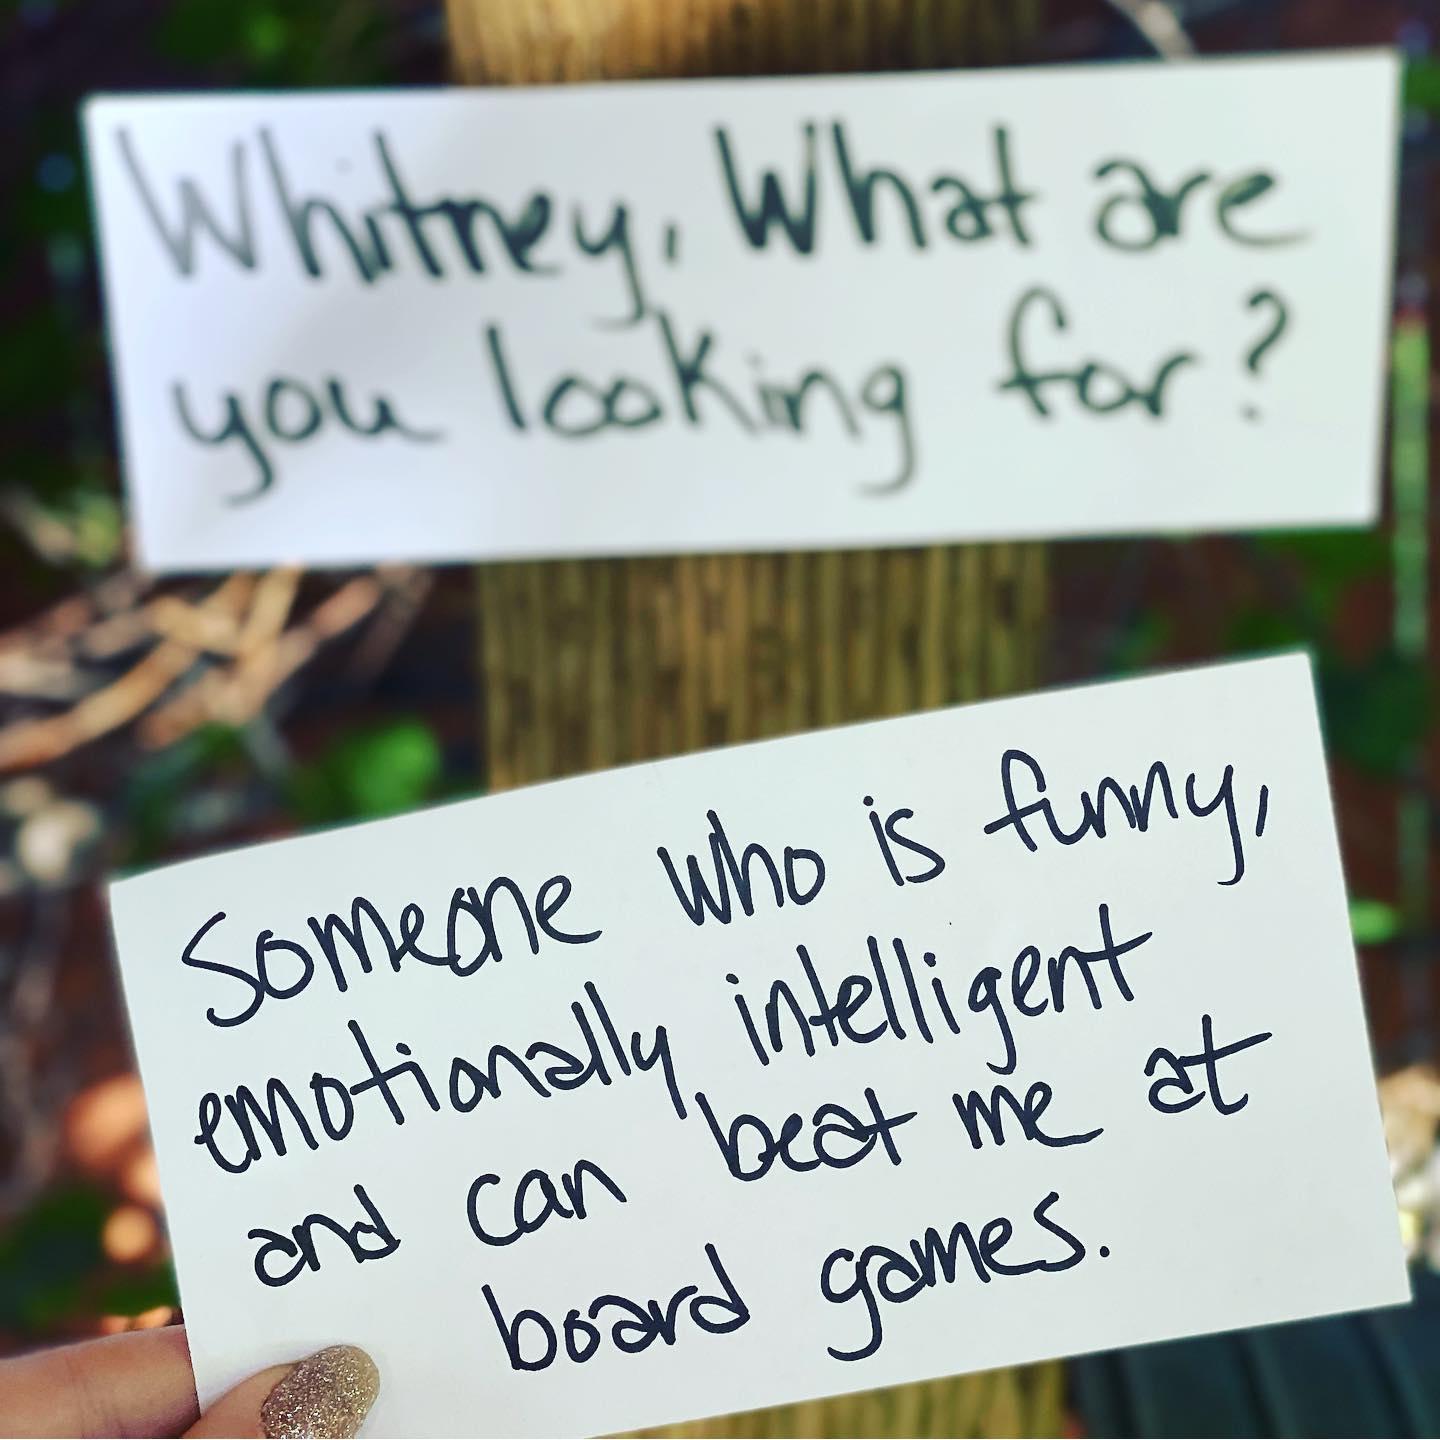 Whitney, What are
you looking for?
Someone who is funny,
emotionally intelligent
and can beat me at
board games.